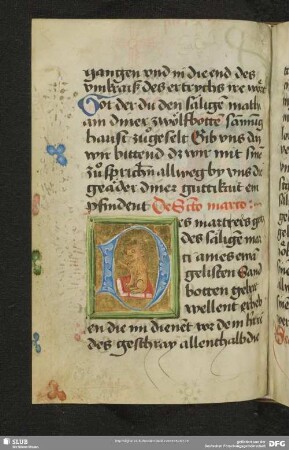 gangen vnd in die end des
vmkraiß des ertrychs ire wort
Got der du den sälige math
am diner zwölfbotten
haust zu geselt Gib vns das
wir bittend das wir mit sine
zu sprechen allweg by vns de
diner guttikait em
pfindent De Scto marco
es martrers
des sälige mar
ci
gelisten Sand
botten
wellent erheb
en die im dienet vor dem herre
des geschray allenthalb die
SLUB
DFG